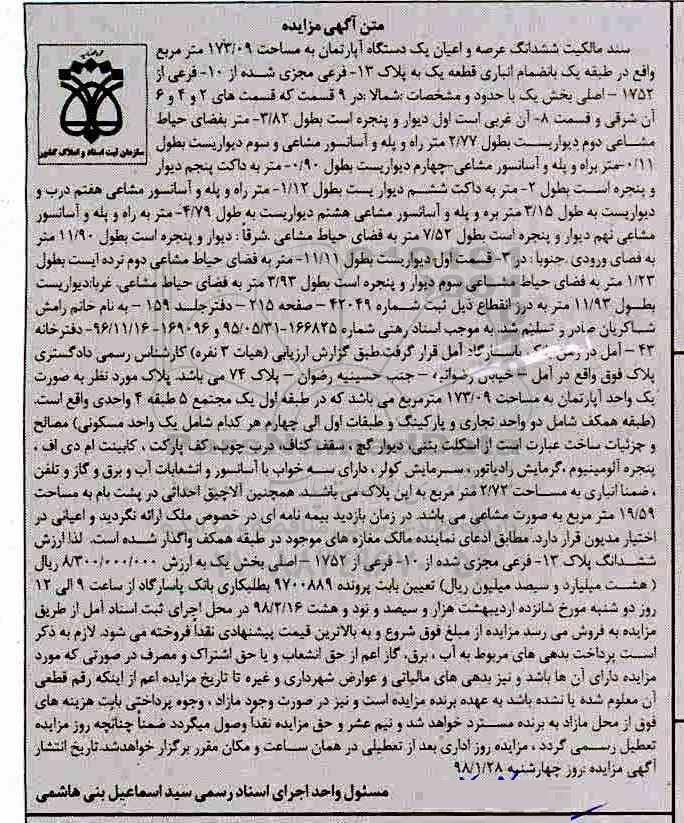 متن آگهی مزایده
سند مالکیت ششدانگ عرصه و اعیان یک دستگاه آپارتمان به مساحت ۱۷۳/۰۹ متر مربع
واقع در طبقه یک بانضمام انباری قطعه یک به پلاک ۱۳- فرعی مجزی شده از ۱۰- فرعی از
۱۷۵۲ - اصلی بخش یک با حدود و مشخصات :شمالا :در ۹ قسمت که قسمت های ۲ و ۴ و ۶
آن شرقی و قسمت ۸- آن غربی است اول دیوار و پنجره است بطول ۳/۸۲- متر بفضای حیاط
مشاعی دوم دیواریست بطول ۲/۷۷ متر راه و پله و آسانسور مشاعی و سوم دیواریست بطول
۰/۱۱-متر براه و پله و آسانسور مشاعی-چهارم دیواریست بطول ۰/۹۰- متر به داکت پنجم دیوار
و پنجره است بطول ۲- متر به داکت ششم دیوار یست بطول ۱/۱۲- متر راه و پله و آسانسور مشاعی هفتم درب و
دیواریست به طول ۳/۱۵ متر بره و پله و آسانسور مشاعی هشتم دیواریست به طول ۴/۷۹- متر به راه و پله و آسانسور
مشاعی نهم دیوار و پنجره است بطول ۷/۵۲ متر به فضای حیاط مشاعی .شرقا : دیوار و پنجره است بطول ۱۱/۹۰ متر
به فضای ورودی .جنوبا : در ۳- قسمت اول دیواریست بطول ۱۱/۱۱- متر به فضای حیاط مشاعی دوم نرده ایست بطول
۱/۲۳ متر به فضای حیاط مشاعی سوم دیوار و پنجره است بطول ۳/۹۳ متر به فضای حیاط مشاعی. غربا:دیواریست
بطول ۱۱/۹۳ متر به درز انقطاع ذیل ثبت شماره ۴۲۰۴۹ - صفحه ۲۱۵ - دفترجلسد ۱۵۹ - به نام خانم رامش
شاکریان صادر و تسلیم شد. به موجب اسناد رهنی شماره ۱۶۶۸۲۵-۹۵/۰۵/۳۱ و ۱۶۹۰۹۶-۹۶/۱۱/۱۶- دفترخانه
۴۳ - آمل در رهن بانک پاسارگاد آمل قرار گرفت.طبق گزارش ارزیابی (هیات ۳ نفره) کارشناس رسمی دادگستری
پلاک فوق واقع در آمل - خیابان رضوانیه - جنب حسینیه رضوان - پلاک ۷۴ می باشد. پلاک مورد نظر به صورت
یک واحد آپارتمان به مساحت ۱۷۳/۰۹ مترمربع می باشد که در طبقه اول یک مجتمع ۵ طبقه ۴ واحدی واقع است.
(طبقه همکف شامل دو واحد تجاری و پارکینگ و طبقات اول الی چهارم هر کدام شامل یک واحد مسکونی) مصالح
و جزئیات ساخت عبارت است از اسکلت بتنی، دیوار گچ ، سقف کناف، درب چوب، کف پارکت ، کابینت ام دی اف ،
پنجره آلومینیوم ،گرمایش رادیاتور ، سرمایش کولر ، دارای سه خواب با آسانسور و انشعابات آب و برق و گاز و تلفن
، ضمنا انباری به مساحت ۲/۷۲ متر مربع به این پلاک می باشد. همچنین آلاچیق احداثی در پشت بام به مساحت
۱۹/۵۹ متر مربع به صورت مشاعی می باشد. در زمان بازدید بیمه نامه ای در خصوص ملک ارائه نگردید و اعیانی در
اختیار مدیون قرار دارد. مطابق ادعای نماینده مالک مغازه های موجود در طبقه همکف واگذار شده است. لذا ارزش
ششدانگ پلاک ۱۳- فرعی مجزی شده از ۱۰- فرعی از ۱۷۵۲ - اصلی بخش یک به ارزش ۸/۳۰۰/۰۰۰/۰۰۰ ریال
( هشت میلیارد و سیصد میلیون ریال) تعیین بابت پرونده ۹۷۰۰۸۸۹ بطلبکاری بانک پاسارگاد از ساعت ۹ الی ۱۲
روز دو شنبه مورخ شانزده اردیبهشت هزار و سیصد و نود و هشت ۹۸/۲/۱۶ در محل اجرای ثبت اسناد آمل از طریق
مزایده به فروش می رسد مزایده از مبلغ فوق شروع و به بالاترین قیمت پیشنهادی نقدا فروخته می شود. لازم به ذکر
است پرداخت بدهی های مربوط به آب ، برق، گاز اعم از حق انشعاب و یا حق اشتراک و مصرف در صورتی که مورد
مزایده دارای آن ها باشد و نیز بدهی های مالیاتی و عوارض شهرداری و غیره تا تاریخ مزایده اعم از اینکه رقم قطعی
آن معلوم شده یا نشده باشد به عهده برنده مزایده است و نیز در صورت وجود مازاد ، وجوه پرداختی بابت هزینه های
فوق از محل مازاد به برنده مسترد خواهد شد و نیم عشر و حق مزایده نقدا وصول میگردد ضمنا چنانچه روز مزایده
تعطیل رسمی گردد ، مزایده روز اداری بعد از تعطیلی در همان ساعت و مکان مقرر برگزار خواهدشد.تاریخ انتشار
آگهی مزایده :روز چهارشنبه ۹۸/۱/۲۸
مسئول واحد اجرای اسناد رسمی سید اسماعیل بنی هاشمی
سازمان ثبت اسناد و املاک کشور